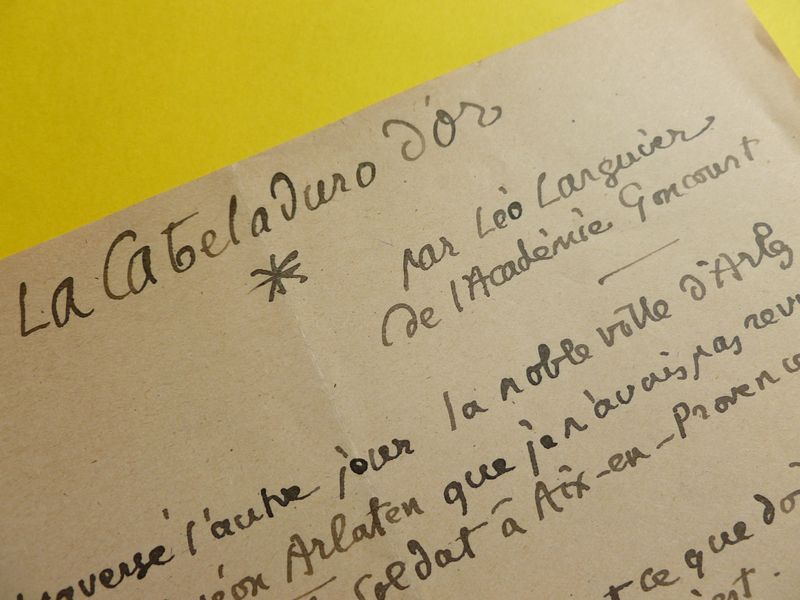 La Cabeladuro d'or
*
par Léo Larguier
de l'Académie Goncourt
traversé l'autre jour la noble ville d'Arles
Arlaten que je n'avais pas
soldat à Aix-en-Provence
ce que